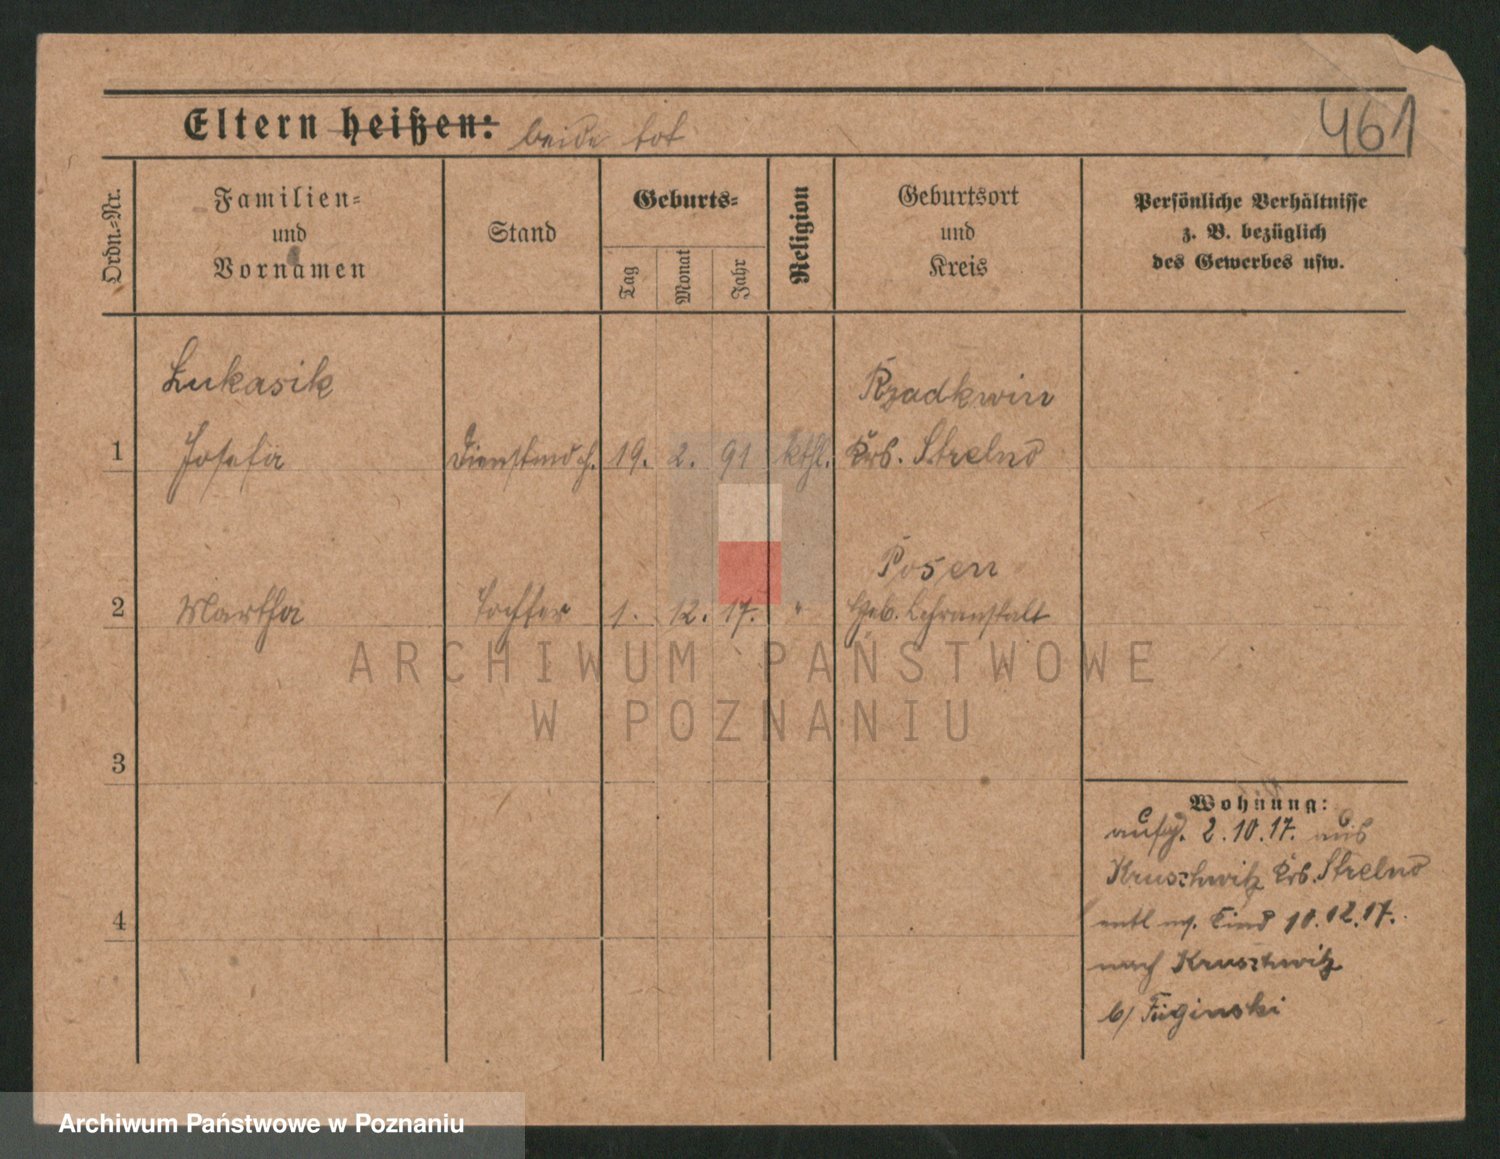 461
Eltern heißen: beide tot
Ordn.-Nr.
Familien-
und
Vornamen
Stand
Geburts-
Tag
Monat
Jahr
Religion
Geburtsort
und
Kreis
Persönliche Verhältnisse
z. B. bezüglich
des Gewerbes usw.
Lukasik
Rzadkwin
1 Josefa Dienstmdch. 19. 2. 91 kthl. Krs. Strelno
Posen
2 Martha Tochter 1. 12. 17. " Heb. Lehranstalt
ARCHIWUM PAŃSTWOWE
W POZNANIU
3
Wohnung:
aufg. 2.10.17. aus
Kruschwitz Krs. Strelno
4
entl m. Kind 10.12.17.
nach Kruschwitz
b/
Archiwum Państwowe w Poznaniu